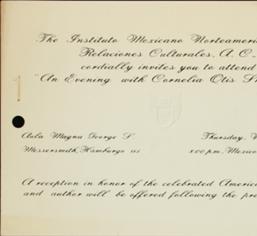 The Instituto Mexicano Norteameri
Relaciones Culturales, A. C.
cordially invites you to attend
"An Evening with Cornelia Otis S
Aula Magna George S.
Thursday,
Messersmith, Hamburgo 115
Mexico
A reception in honor of the celebrated America
and author will be offered following the pre